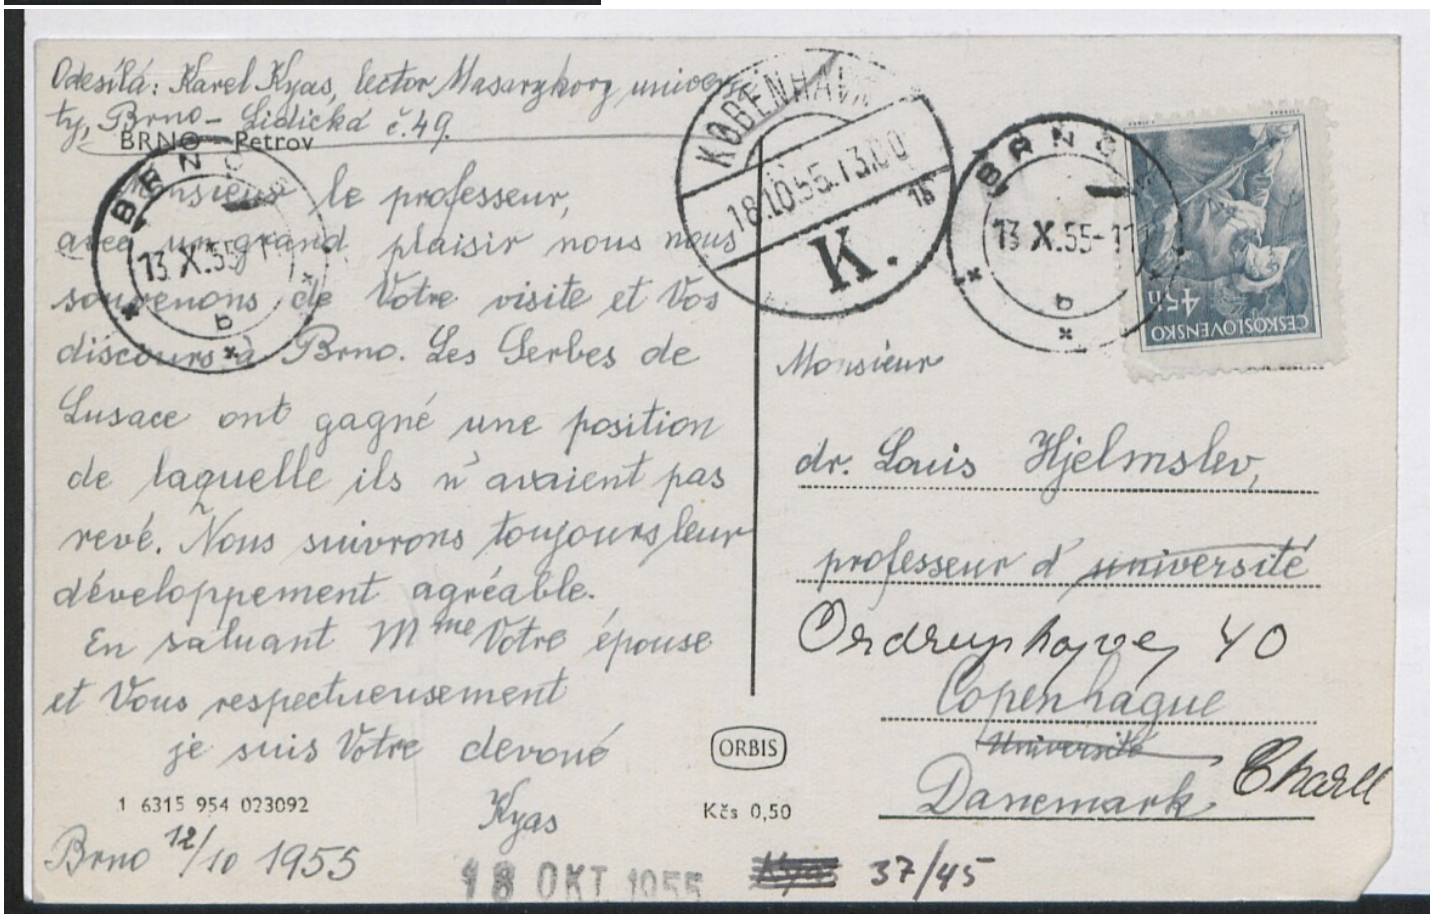 Odesílá: Karel Kyas, lector Masarykovy univers
ty, Brno - Lidická č. 49.
BRNO - Petrov
Monsieur le professeur,
avec un grand plaisir nous nous
souvenons de Votre visite et Vos
discours à Brno. Les Serbes de
Lusace ont gagné une position
de laquelle ils n'avaient pas
revé. Nous suivrons toujours leur
développement agréable.
En saluant Mme Votre épouse
et Vous respectueusement
je suis Votre devoué
Kyas
1 6315 954 023092
Brno 12/10 1955
18 OKT. 1955
ORBIS
Kčs 0,50
BRNO
13.X.55-11
b
KØBENHAVN
18.10.55.13.00
15
K.
BRNO
13.X.55-11
b
45h
ČESKOSLOVENSKO
Monsieur
dr. Louis Hjelmslev,
professeur d'université
40
Copenhague
Université
Danemark
Kyas 37/45